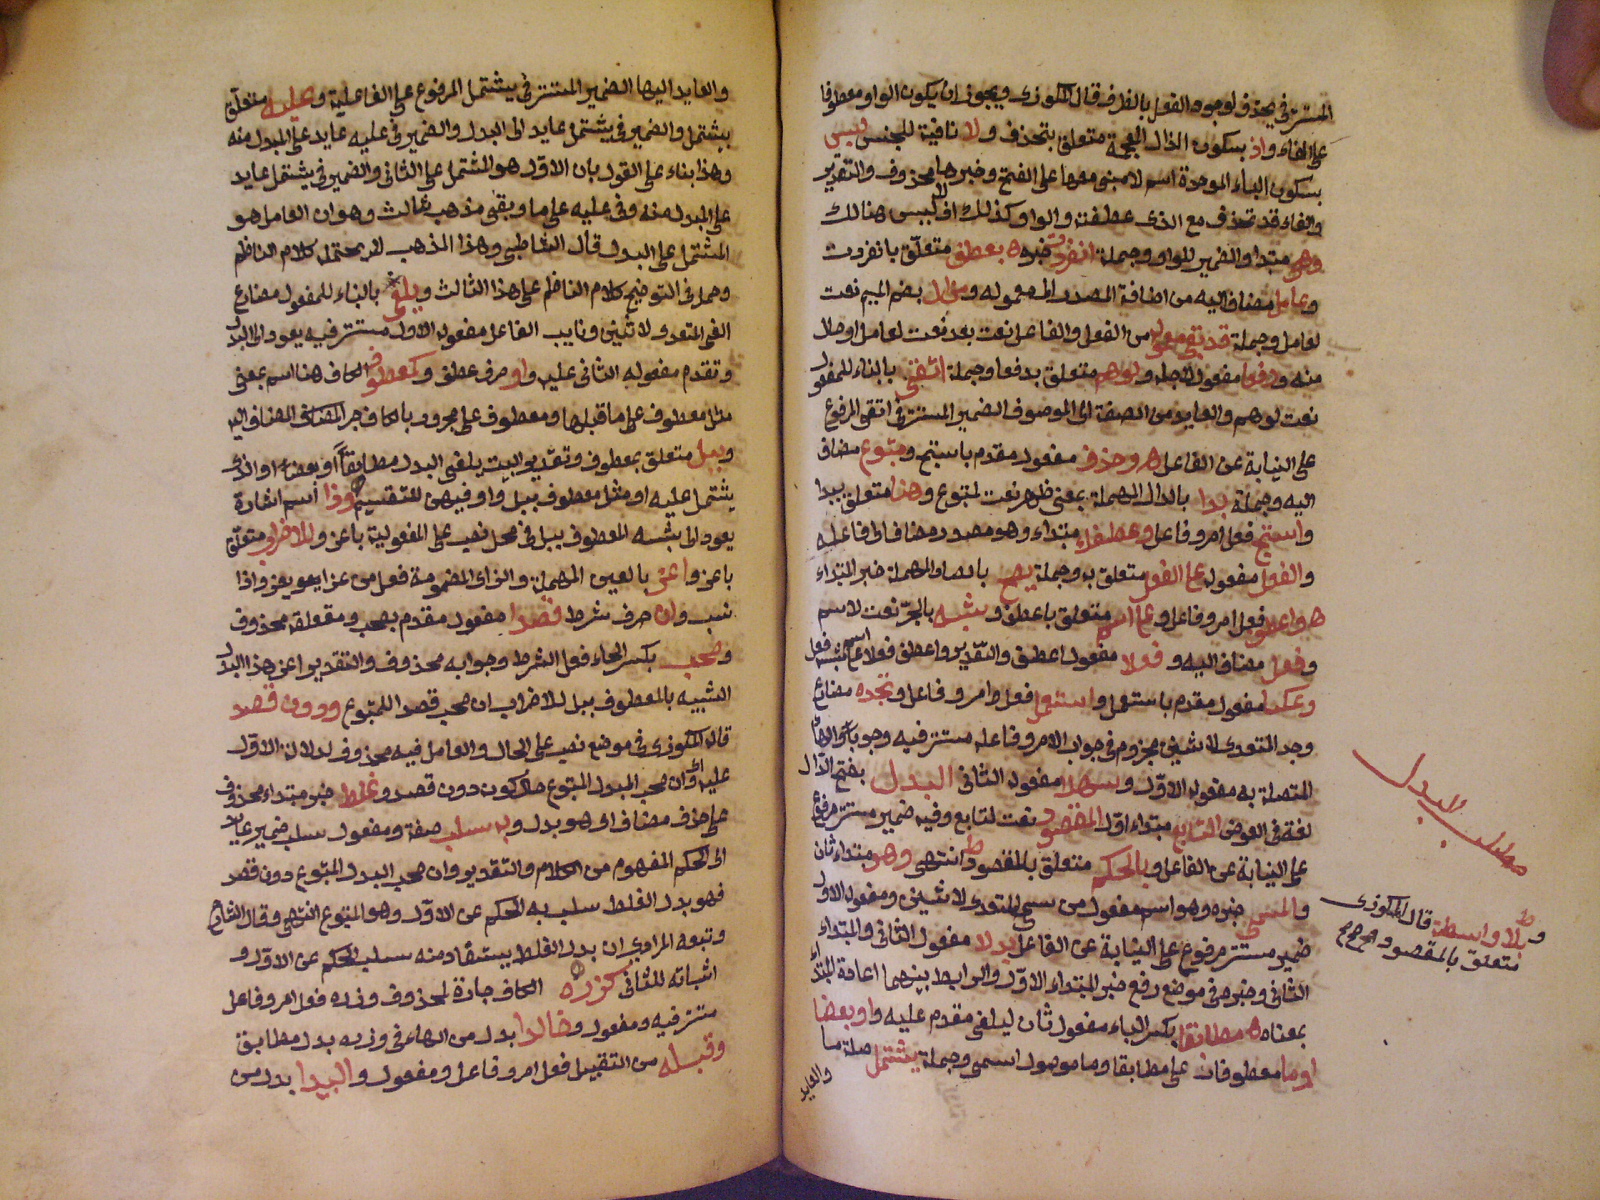 المستتر في يحذف لوجود الفعل بالفرف قال المكودي ويجوز ان يكون الواو معطوفا
على الفاء واذ بسكون الذال المعجمة متعلق بتحذف ولا نافية للجنس لبس
بسكون الباء الموحدة اسم لا مبني معها على الفتح وخبرها محذوف والتقدير
والفاء قد تحذف مع الذي عطفت والواو كذلك اذ لا لبس هنالك
وهي مبتدا والضمير للواو وجملة انفردت خبره بعطف متعلق بانفردت
وعامل مضاف اليه من اضافة المصدر الى معموله ومزال بضم الميم نعت
لعامل وجملة قد بقي معموله من الفعل والفاعل نعت بعد نعت لعامل او حال
منه ودفعا مفعول لاجله ولوهم متعلق بدفعا وجملة اتقي بالبناء للمفعول
نعت لوهم والعايد من الصفة الى الموصوف الضمير المستتر في اتقي المرفوع
على النيابة عن الفاعل وحذف مفعول مقدم باستبح ومتبوع مضاف
اليه وجملة بدا بالدال المهملة بمعنى ظهر نعت لمتبوع وهنا متعلق ببدا
واستبح فعل امر وفاعل وعطفك مبتداء وهو مصدر مضاف الى فاعله
والفعل مفعوله على الفعل متعلق به وجملة يصح بالصاد المهملة خبر المبتداء
واعطف فعل امر وفاعل وعلى اسم متعلق باعطف وشبه بالجر نعت لاسم
وفعل مضاف اليه و فعلا مفعول اعطف والتقدير واعطف فعلا على اسم شبه فعل
وعكسا مفعول مقدم باستعمل واستعمل فعل امر وفاعل وتجده مضارع
وجد المتعدي لاثنين مجزوم في جواب الامر وفاعله مستتر فيه وجوبا والهاء
المتصلة به مفعوله الاول وسهلا مفعوله الثاني البدل بفتح الدال
لغة في العوض التابع مبتداء اول المقصود نعت لتابع وفيه ضمير مستتر مرفوع
على النيابة عن الفاعل وبالحكم متعلق بالمقصود انتهى وهو مبتداء ثان
والمسمى خبره وهو اسم مفعول من سمى المتعدي لاثنين ومفعوله الاول
ضمير مستتر مرفوع على النيابة عن الفاعل بدلا مفعول الثاني والمبتداء
الثاني وخبره في موضع رفع خبر المبتداء الاول والرابط بينهما اعادة المبتداء
بمعناه مطابقا بكسر الباء مفعول ثان ليلفى مقدم عليه واو بعضا
او ما معطوفان على مطابقا وما موصول اسمي وجملة يشتمل صلة ما
والعايد
مطلب البدل
وبلا واسطة قال المكودي
متعلق بالمقصود صح
والعايد اليها الضمير المستتر في يشتمل المرفوع على الفاعلية وعليه متعلق
بيشتمل والضمير في يشتمل عايد الى البدل والضمير في عليه عايد على المبدل منه
وهذا بناء على القول بان الاول هو المشتمل على الثاني والضمير في يشتمل عايد
على المبدل منه وفي عليه على ما وبقى مذهب ثالث وهو ان العامل هو
المشتمل على البدل قال الشاطبي وهذا المذهب لا يحتمله كلام الناظم
وحمل في التوضيح كلام الناظم على هذا الثالث ويلفى بالبناء للمفعول مضارع
الفى المتعدي لاثنين ونايب الفاعل مفعوله الاول مستتر فيه يعود الى البدل
وتقدم مفعوله الثاني عليه واو حرف عطف وكمعطوف الكاف هنا اسم بمعنى
مثل معطوف على ما قبلها ومعطوف على مجرور بالكاف جر المضاف المضاف اليه
وببل متعلق بمعطوف وتقدير البيت يلفى البدل مطابقا او بعضا او الذي
يشتمل عليه او مثل معطوف ببل واو فيهن للتقسيم وذا اسم اشارة
يعود الى شبه المعطوف ببل في محل نصب على المفعولية باعز وللاضراب متعلق
باعز واعز بالعين المهملة والزاي المضمومة فعل من عزا يعزو يعز واذا
نسب وان حرف شرط قصدا مفعول مقدم بصحب ومتعلقه محذوف
وصحب بكسر الحاء فعل الشرط وجوابه محذوف والتقدير اعز هذا البدل
الشبيه بالمعطوف ببل للاضراب ان صحب قصد المتبوع ودون قصد
قال المكودي في موضع نصب على الحال والعامل فيه محذوف لدلالة الاول
عليه اي وان صحب البدل المتبوع حال كونه دون قصد وغلط خبر مبتداء محذوف
على حذف مضاف اي هو بدل وبه سلب صفة ومفعول سلب ضمير عايد
الى الحكم المفهوم من الكلام والتقدير وان صحب البدل المتبوع دون قصد
فهو بدل الغلط سلب به الحكم عن الاول وهو المتبوع انتهى وقال الشارح
وتبعه المرادي ان بدل الغلط يستفاد منه سلب الحكم عن الاول و
اثباته للثاني كزره الكاف جارة لمحذوف وزره فعل امر وفاعل
مستتر فيه ومفعول وخالدا بدل من الهاء في وزره بدل مطابق
وقبله من التقبيل فعل امر وفاعل ومفعول واليدا بدل من